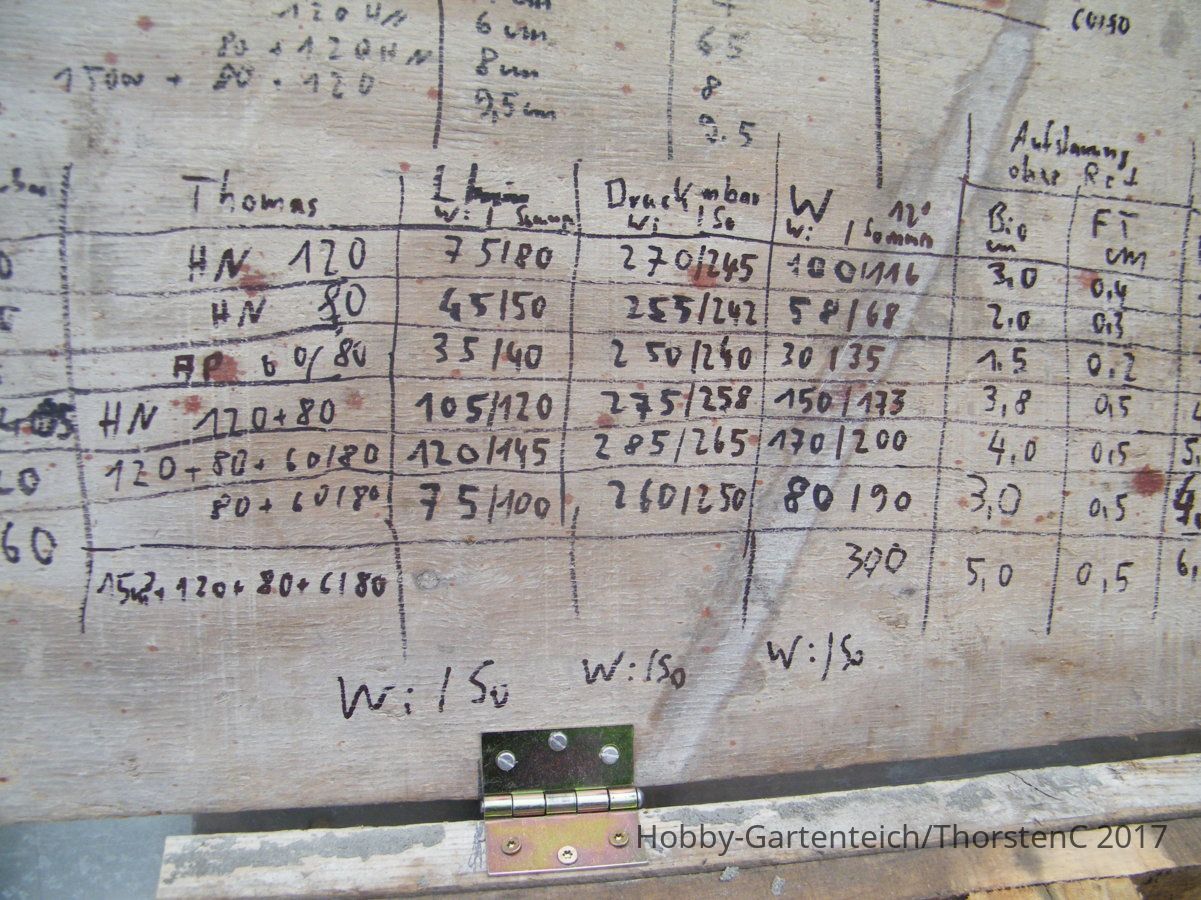 120 HN 6 cm
80 + 120 HN 8 cm 6 5
150W + 80 + 120 9,5 cm 8
9.5
Aufstauung
ohne
Thomas L/min Druck mbar W 12°
Wi / Somm Wi / So Wi / Somm Bio cm FT cm
HN 120 75/80 270/245 100/116 3,0 0,4
HN 80 45/50 255/242 58/68 2,0 0,3
AP 60/80 35/40 250/240 30/35 1.5 0,2
HN 120+80 105/120 275/258 150/173 3,8 0,5
20 120+80+60/80 120/145 285/265 170/200 4,0 0,5 5,
80+60/80 75/100 260/250 80/90 3,0 0,5
60 120+80+6/80 300 5,0 0,5 6,
Wi / So Wi/So Wi/So
Hobby-Gartenteich/ThorstenC 2017